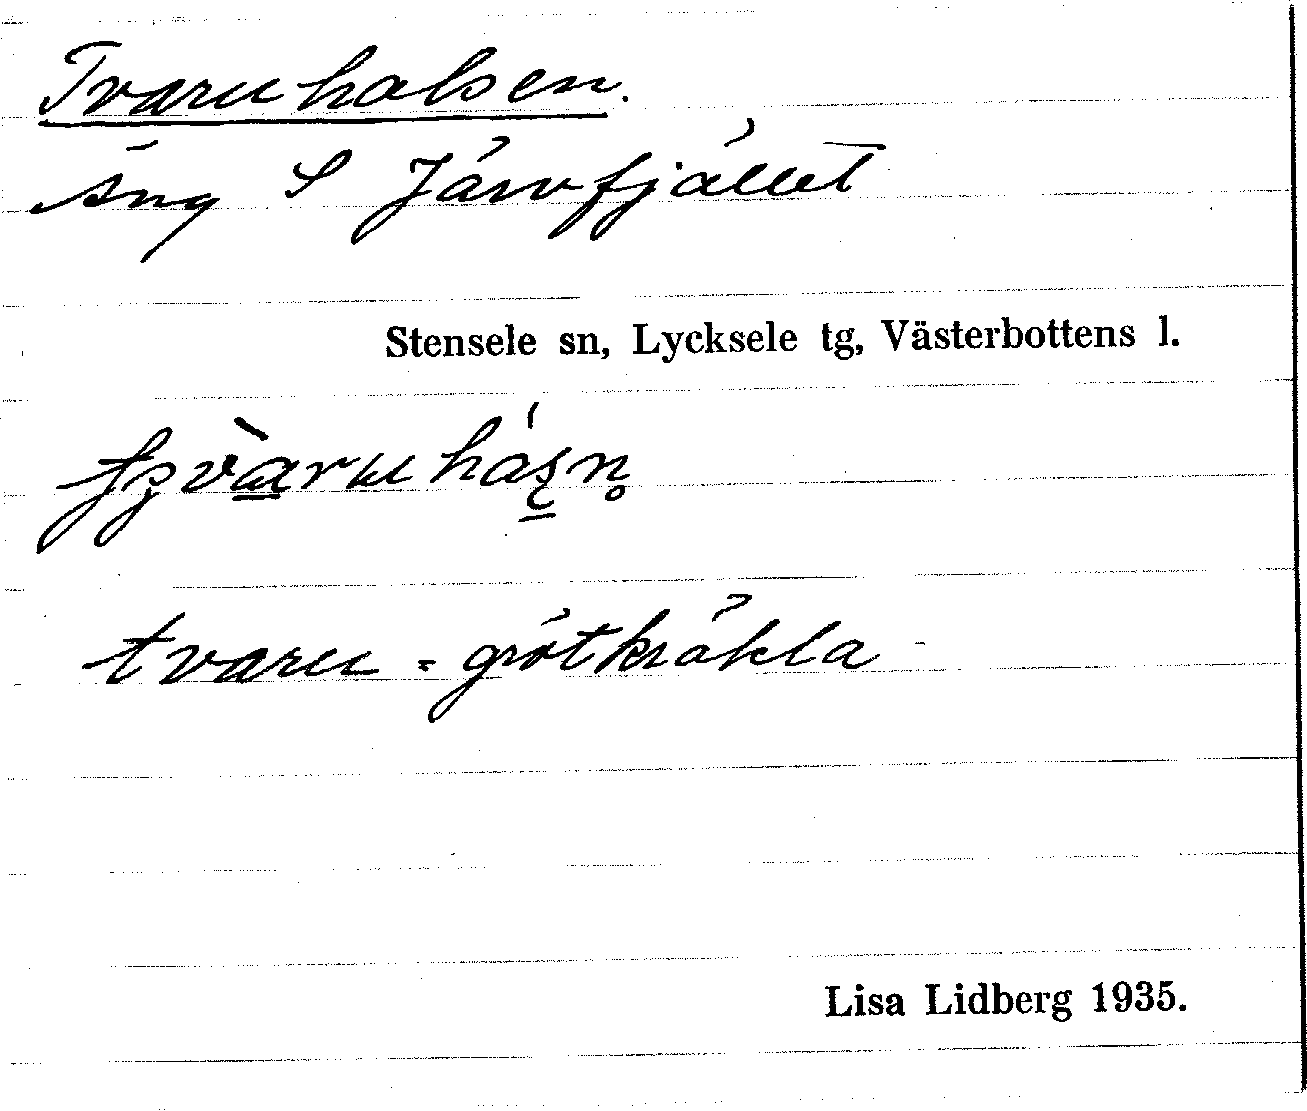 Tvaruhalsen.
Äng S Järvfjället
Stensele sn, Lycksele tg, Västerbottens l.
tvaru = grötkräkla
Lisa Lidberg 1935.